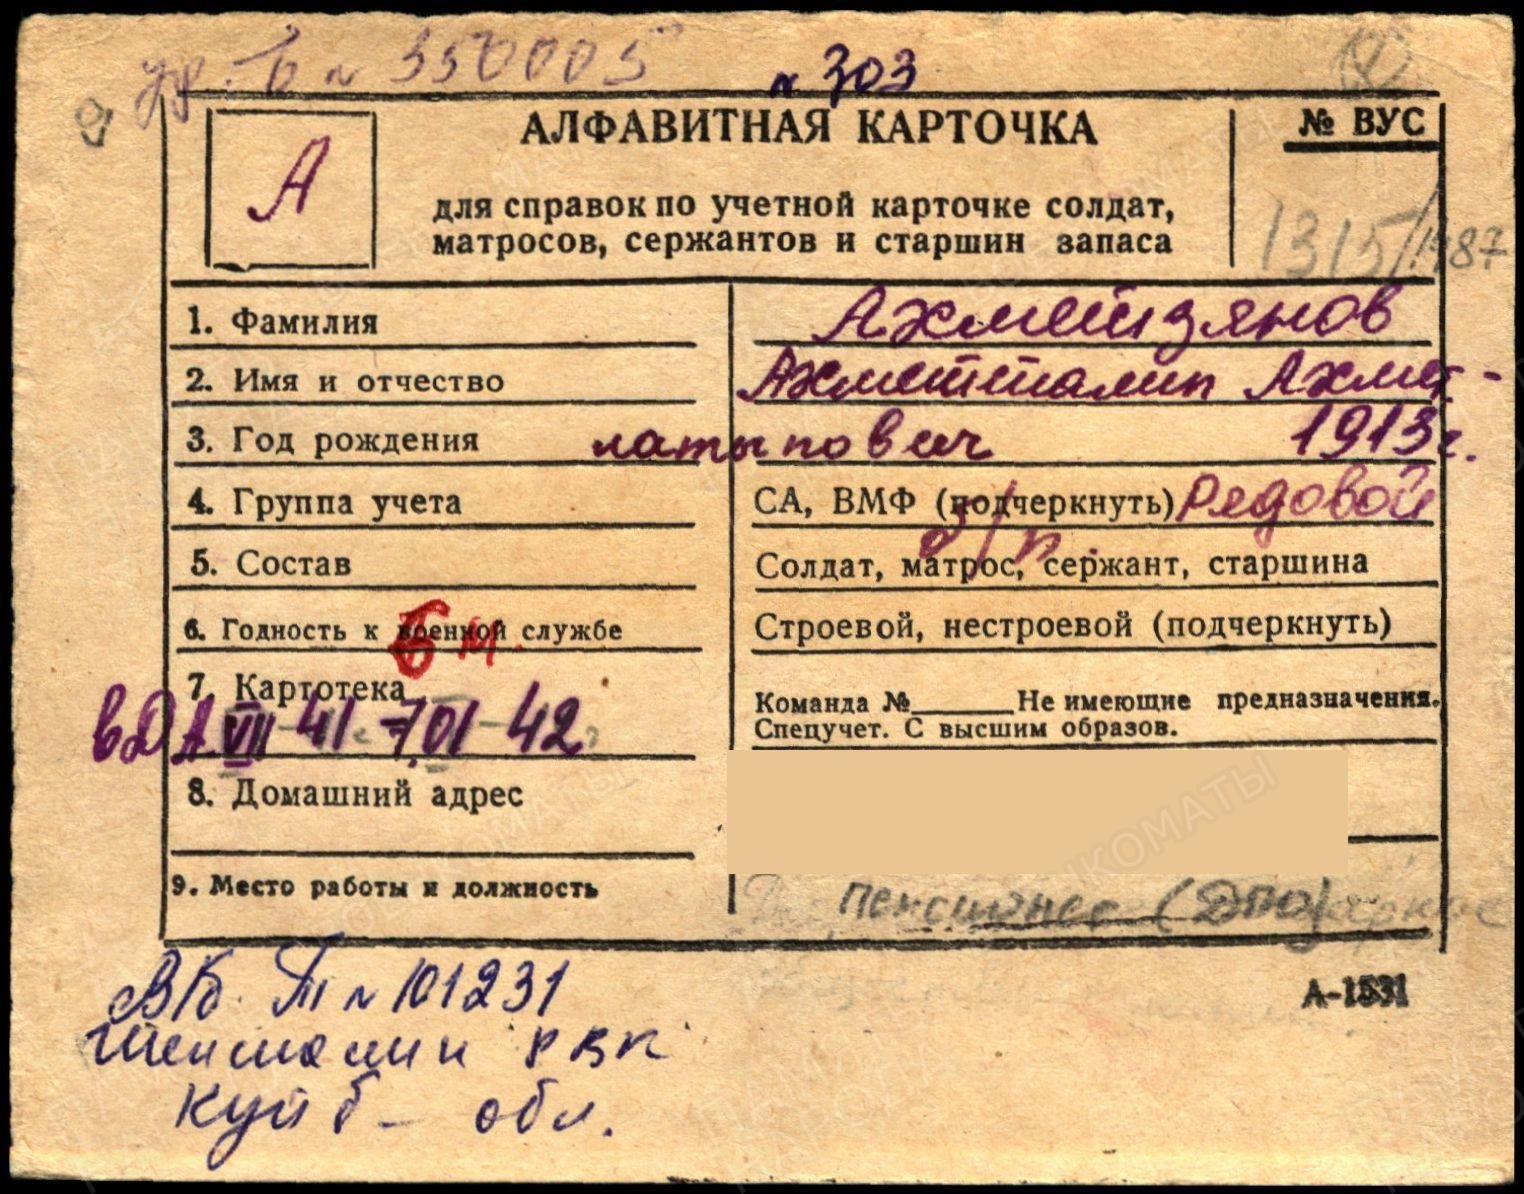 уд. Б № 350005
№ 303
А
АЛФАВИТНАЯ КАРТОЧКА
№ ВУС
для справок по учетной карточке солдат,
матросов, сержантов и старшин запаса
1315/1987
1. Фамилия Ахметзянов
2. Имя и отчество Ахметталип Ахмет-
3. Год рождения латыпович 1913г.
4. Группа учета СА, ВМФ (подчеркнуть) Рядовой
б/п.
5. Состав Солдат, матрос, сержант, старшина
6. Годность к военной службе Строевой, нестроевой (подчеркнуть)
7. Картотека Команда №______Не имеющие предназначения.
Спецучет. С высшим образов.
в ДА VII-41-7.01-42
8. Домашний адрес
9. Место работы и должность Пенсионер (ДПО)
А-1531
В/б. Т № 101231
Шенталин РВК
Куйб- обл.